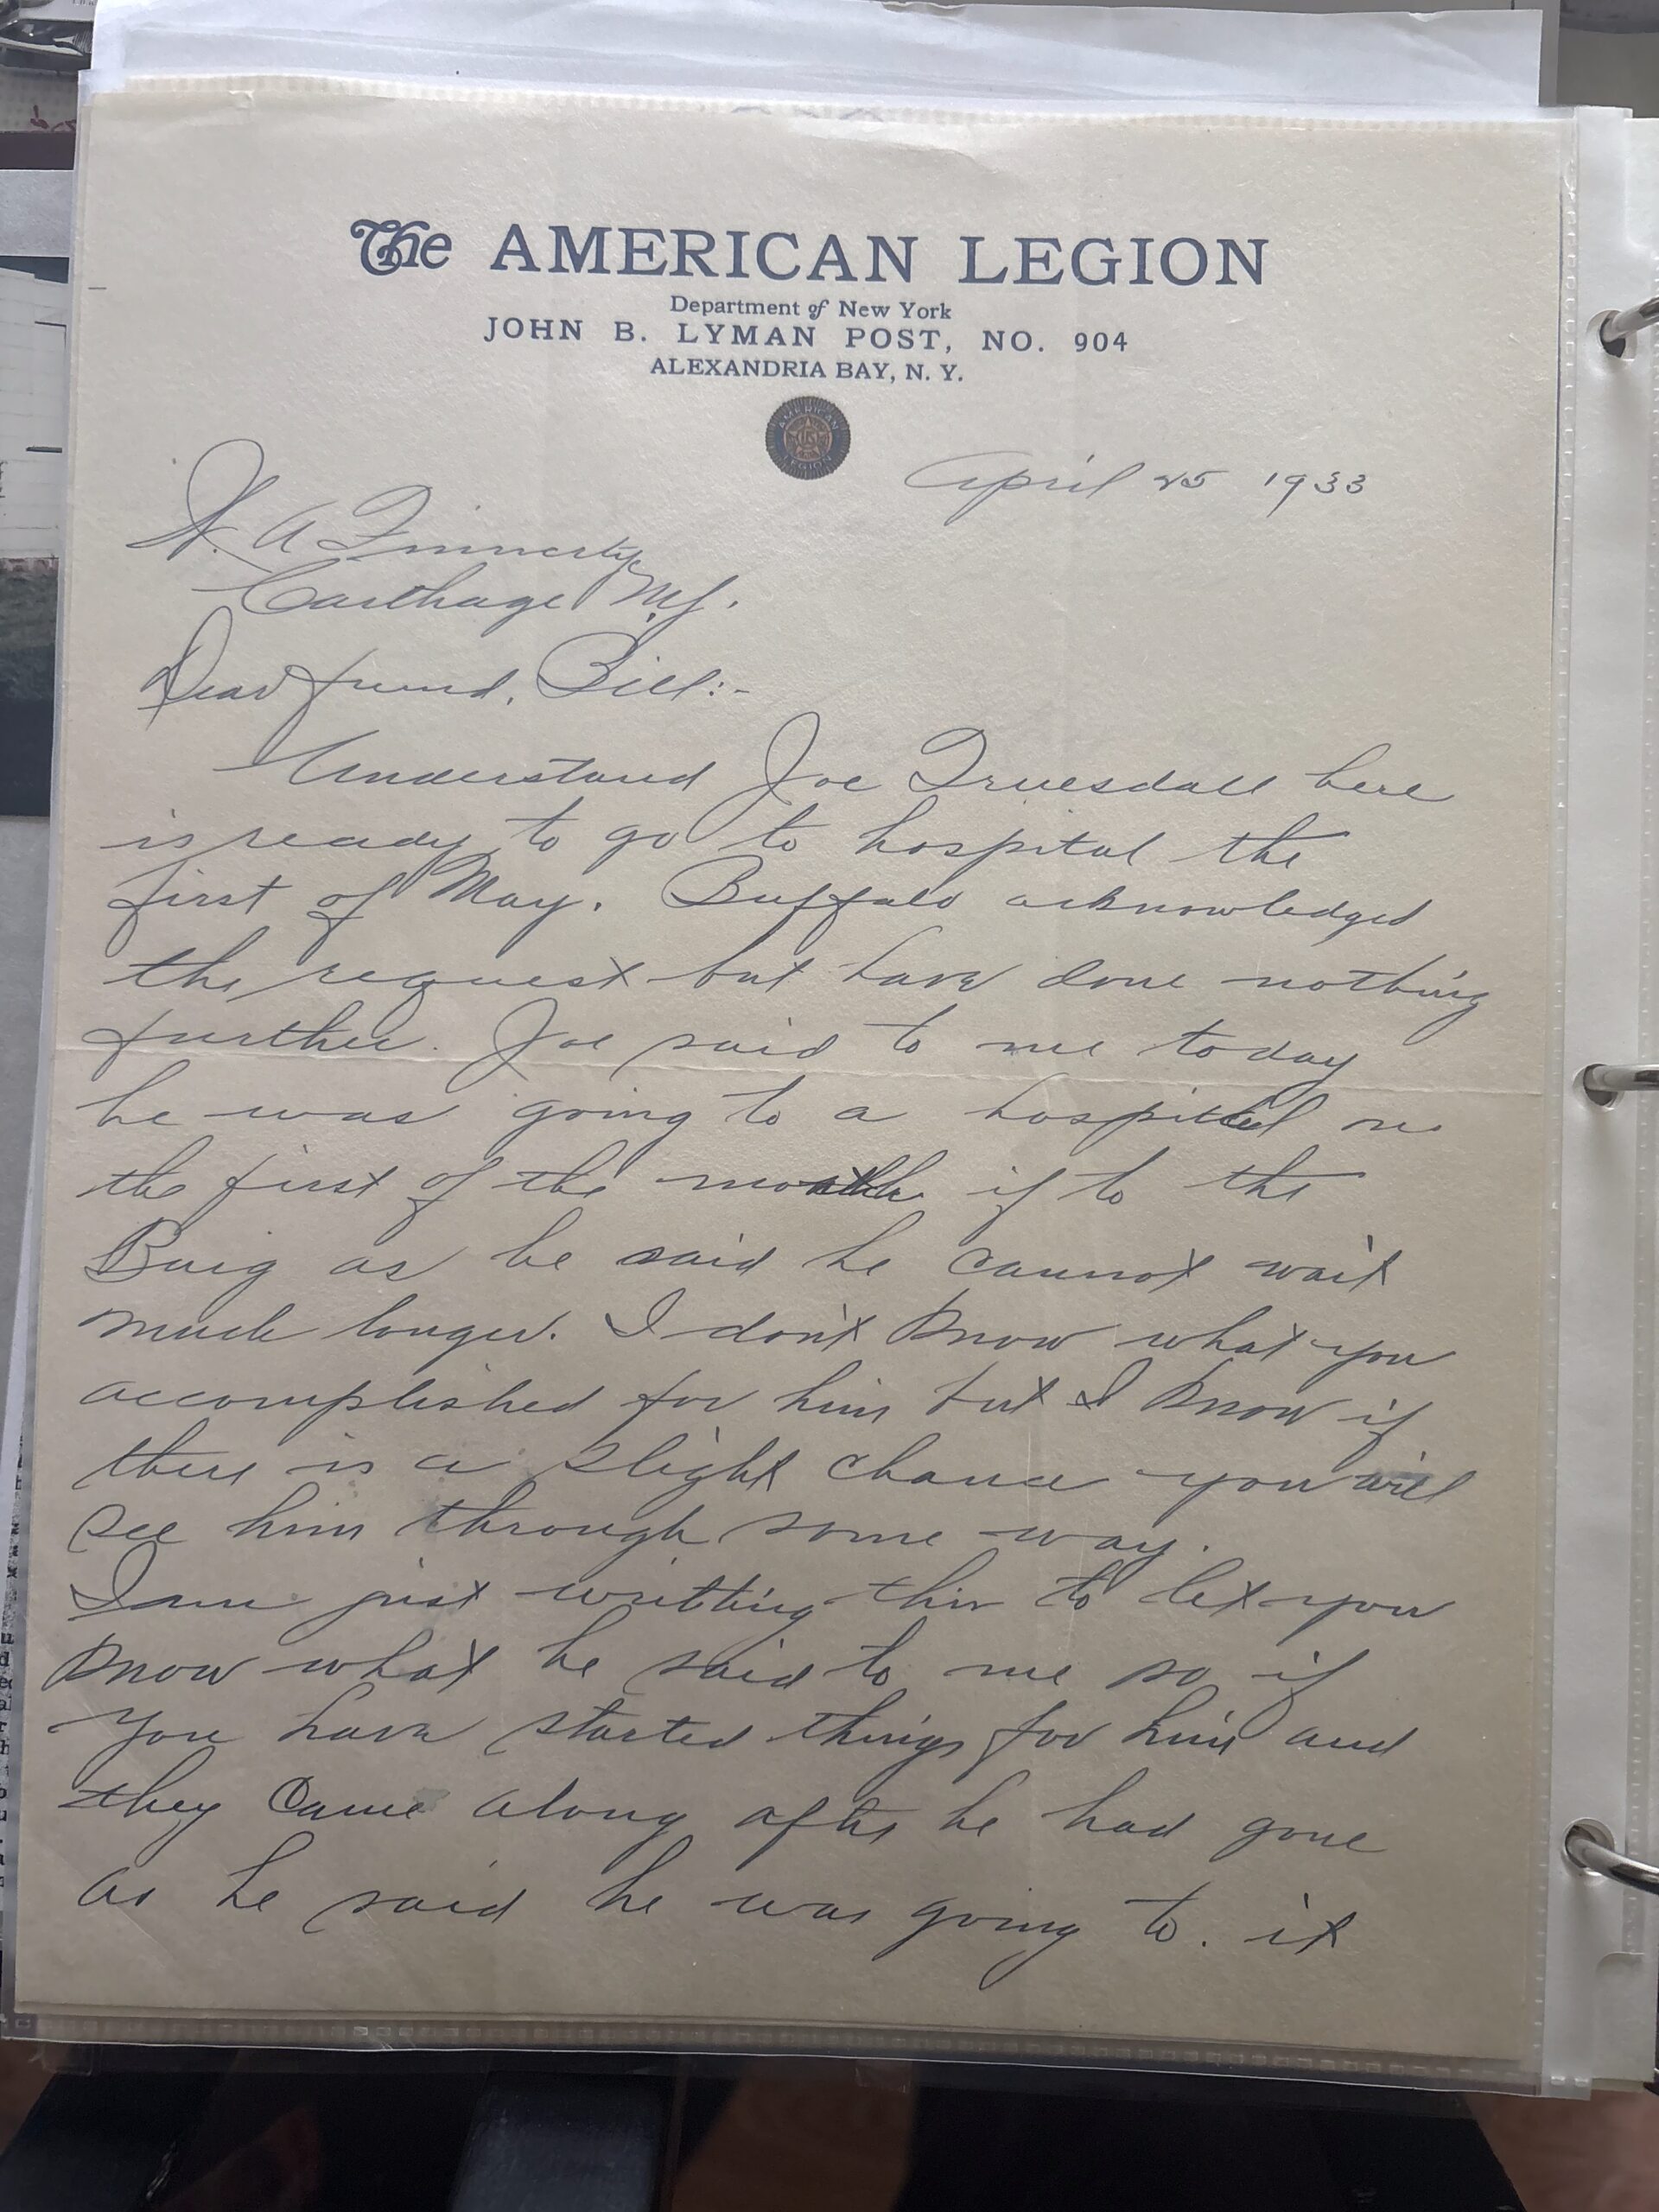 The AMERICAN LEGION
Department of New York
JOHN B. LYMAN POST, NO. 904
ALEXANDRIA BAY, N. Y.
AMERICAN LEGION
April 25 1933
W. A Finnerty,
Carthage N.Y.
Dear friend, Bill:-
Understand Joe Truesdall here
is ready to go to hospital the
first of May. Buffalo acknowledged
the request but have done nothing
further. Joe said to me today
he was going to a hospital on
the first of the month if to the
Burg as he said he cannot wait
much longer. I don't know what you
accomplished for him but I know if
there is a slight chance you will
see him through some way.
I am just writting this to let you
know what he said to me so if
you have started things for him and
they came along after he had gone
as he said he was going to. it